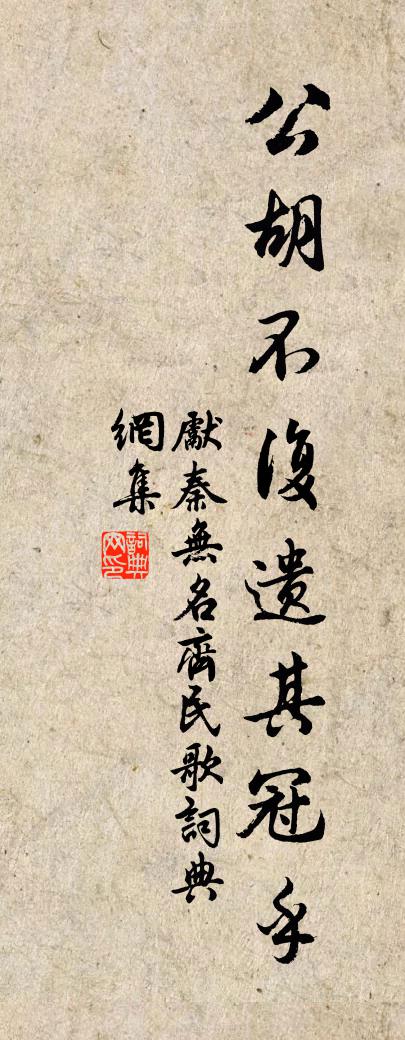 公胡不復遺其冠乎
獻秦無名齊民歌詞典
網集
詞典
网印